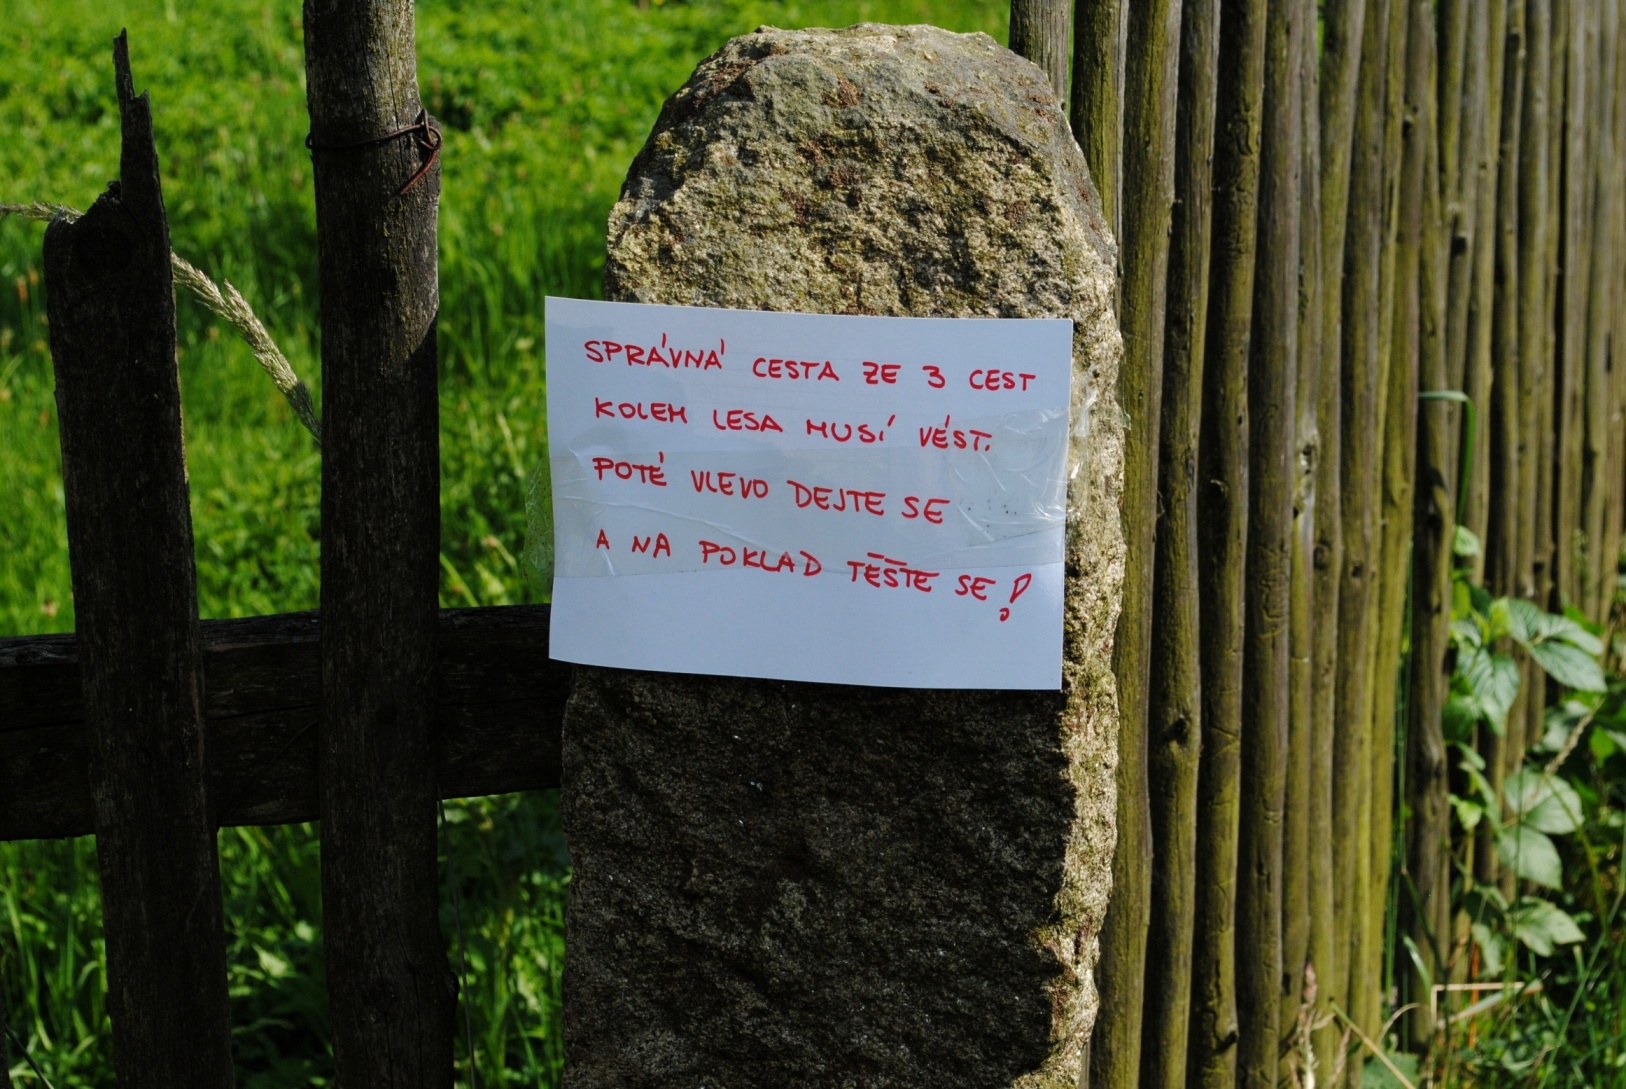 SPRÁVNÁ CESTA ZE 3 CEST
KOLEM LESA MUSÍ VÉST.
POTÉ VLEVO DEJTE SE
A NA POKLAD TĚŠTE SE!